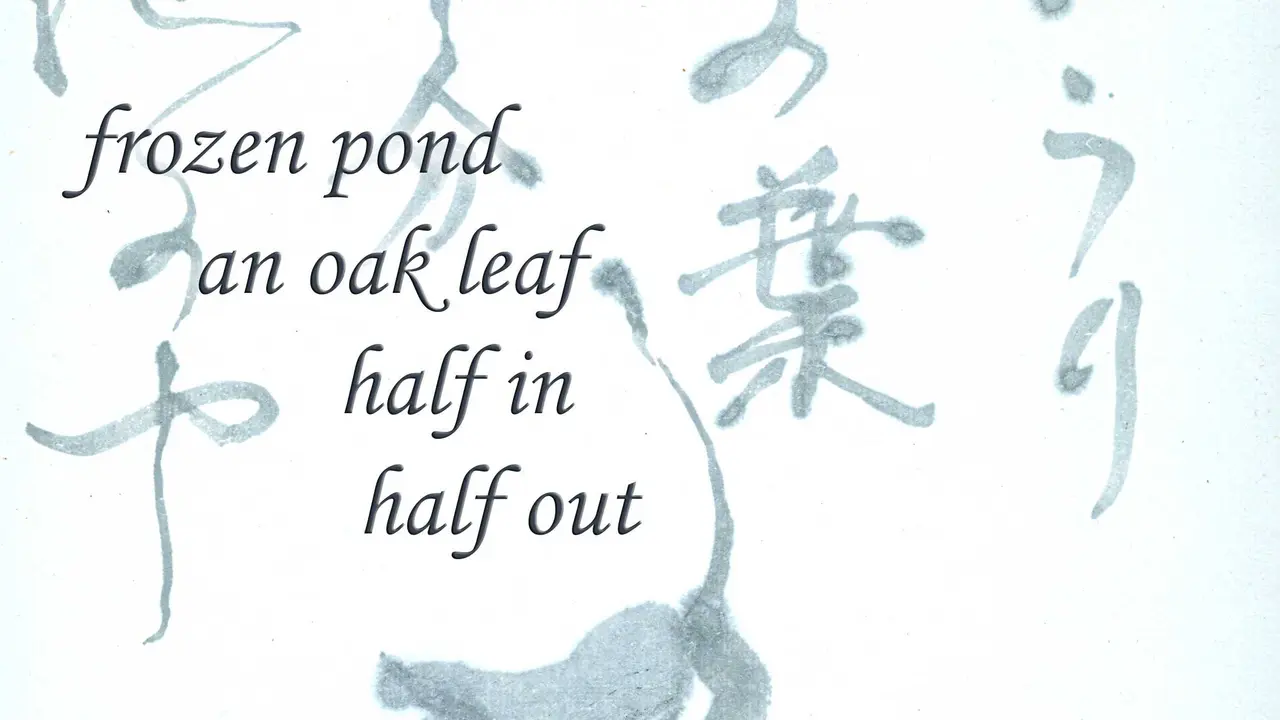 frozen pond
an oak leaf
half in
half out
うり
の葉
や